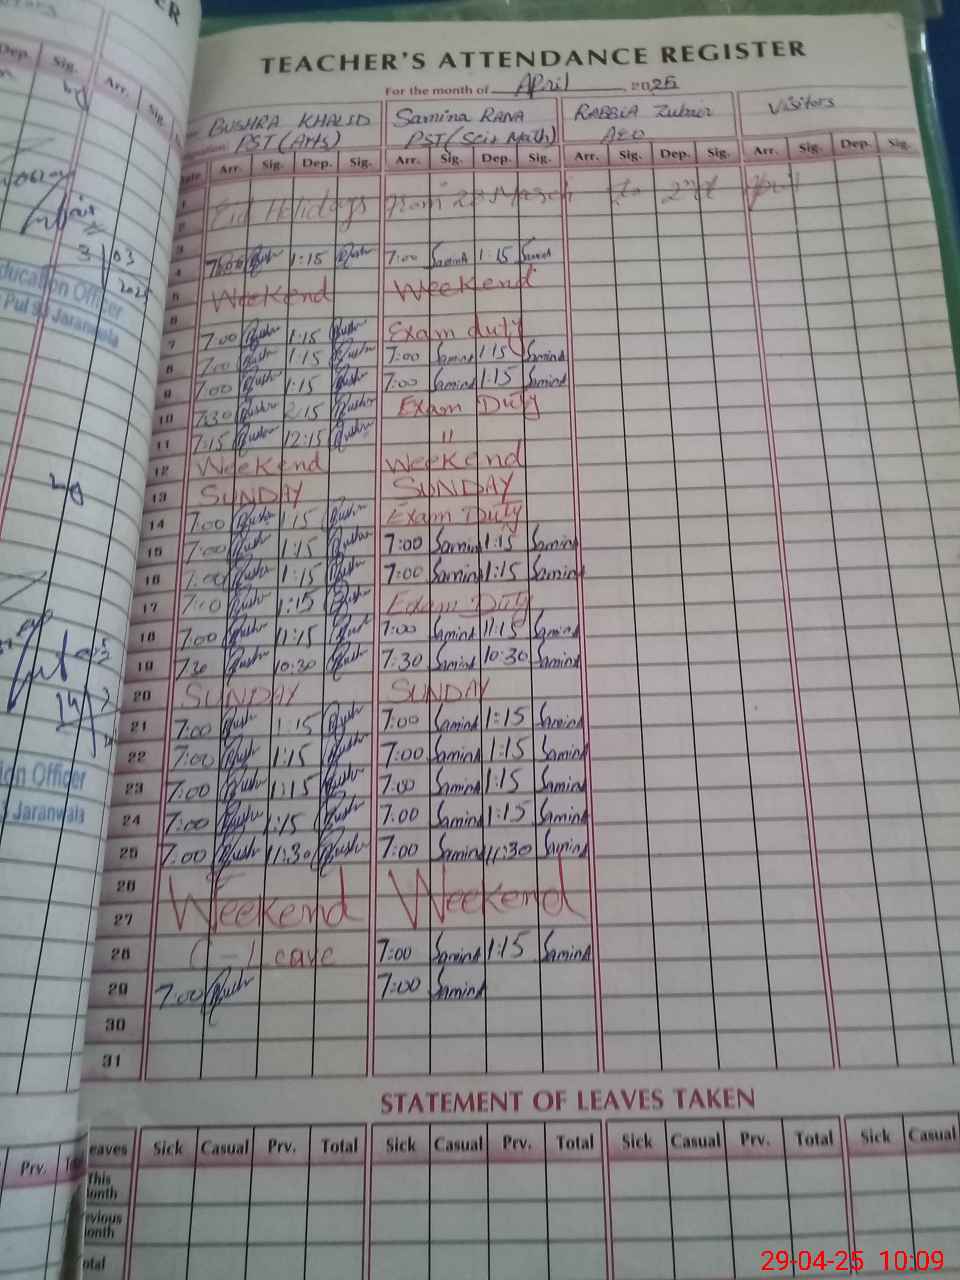 TEACHER'S ATTENDANCE REGISTER
For the month of April 2025
BUSHRA KHALID Samina RANA RABBIA Zubair Visitors
PST (Arts) PST (Sci+Math) AEO
Arr. Sig. Dep. Sig. Arr. Sig. Dep. Sig. Arr. Sig. Dep. Sig. Arr. Sig. Dep. Sig.
1 Eid Holidays from 28 March to 2nd April
2
3
4 7:00 Bush 1:15 Bush 7:00 Samina 1:15 Samina
5 Weekend Weekend
6
7 7:00 Bush 1:15 Bush Exam duty
8 7:00 Bush 1:15 Bush 7:00 Samina 1:15 Samina
9 7:00 Bush 1:15 Bush 7:00 Samina 1:15 Samina
10 7:30 Bush 2:15 Bush Exam Duty
11 7:15 Bush 12:15 Bush "
12 Weekend Weekend
13 SUNDAY SUNDAY
14 7:00 Bush 1:15 Bush Exam Duty
15 7:00 Bush 1:15 Bush 7:00 Samina 1:15 Samina
16 7:00 Bush 1:15 Bush 7:00 Samina 1:15 Samina
17 7:00 Bush 1:15 Bush Exam Duty
18 7:00 Bush 11:15 Bush 7:00 Samina 11:15 Samina
19 7:30 Bush 10:30 Bush 7:30 Samina 10:30 Samina
20 SUNDAY SUNDAY
21 7:00 Bush 1:15 Bush 7:00 Samina 1:15 Samina
22 7:00 Bush 1:15 Bush 7:00 Samina 1:15 Samina
23 7:00 Bush 1:15 Bush 7:00 Samina 1:15 Samina
24 7:00 Bush 1:15 Bush 7:00 Samina 1:15 Samina
25 7:00 Bush 11:30 Bush 7:00 Samina 11:30 Samina
26 Weekend Weekend
27
28 (-) Leave 7:00 Samina 1:15 Samina
29 7:00 Bush 7:00 Samina
30
31
STATEMENT OF LEAVES TAKEN
eaves Sick Casual Prv. Total Sick Casual Prv. Total Sick Casual Prv. Total Sick Casual
This
onth
evious
onth
otal
Dep. Sig. Arr. Sig.
3/03
2025
ducation Officer
Jaranwala
ion Officer
Jaranwala
Prv.
29-04-25 10:09